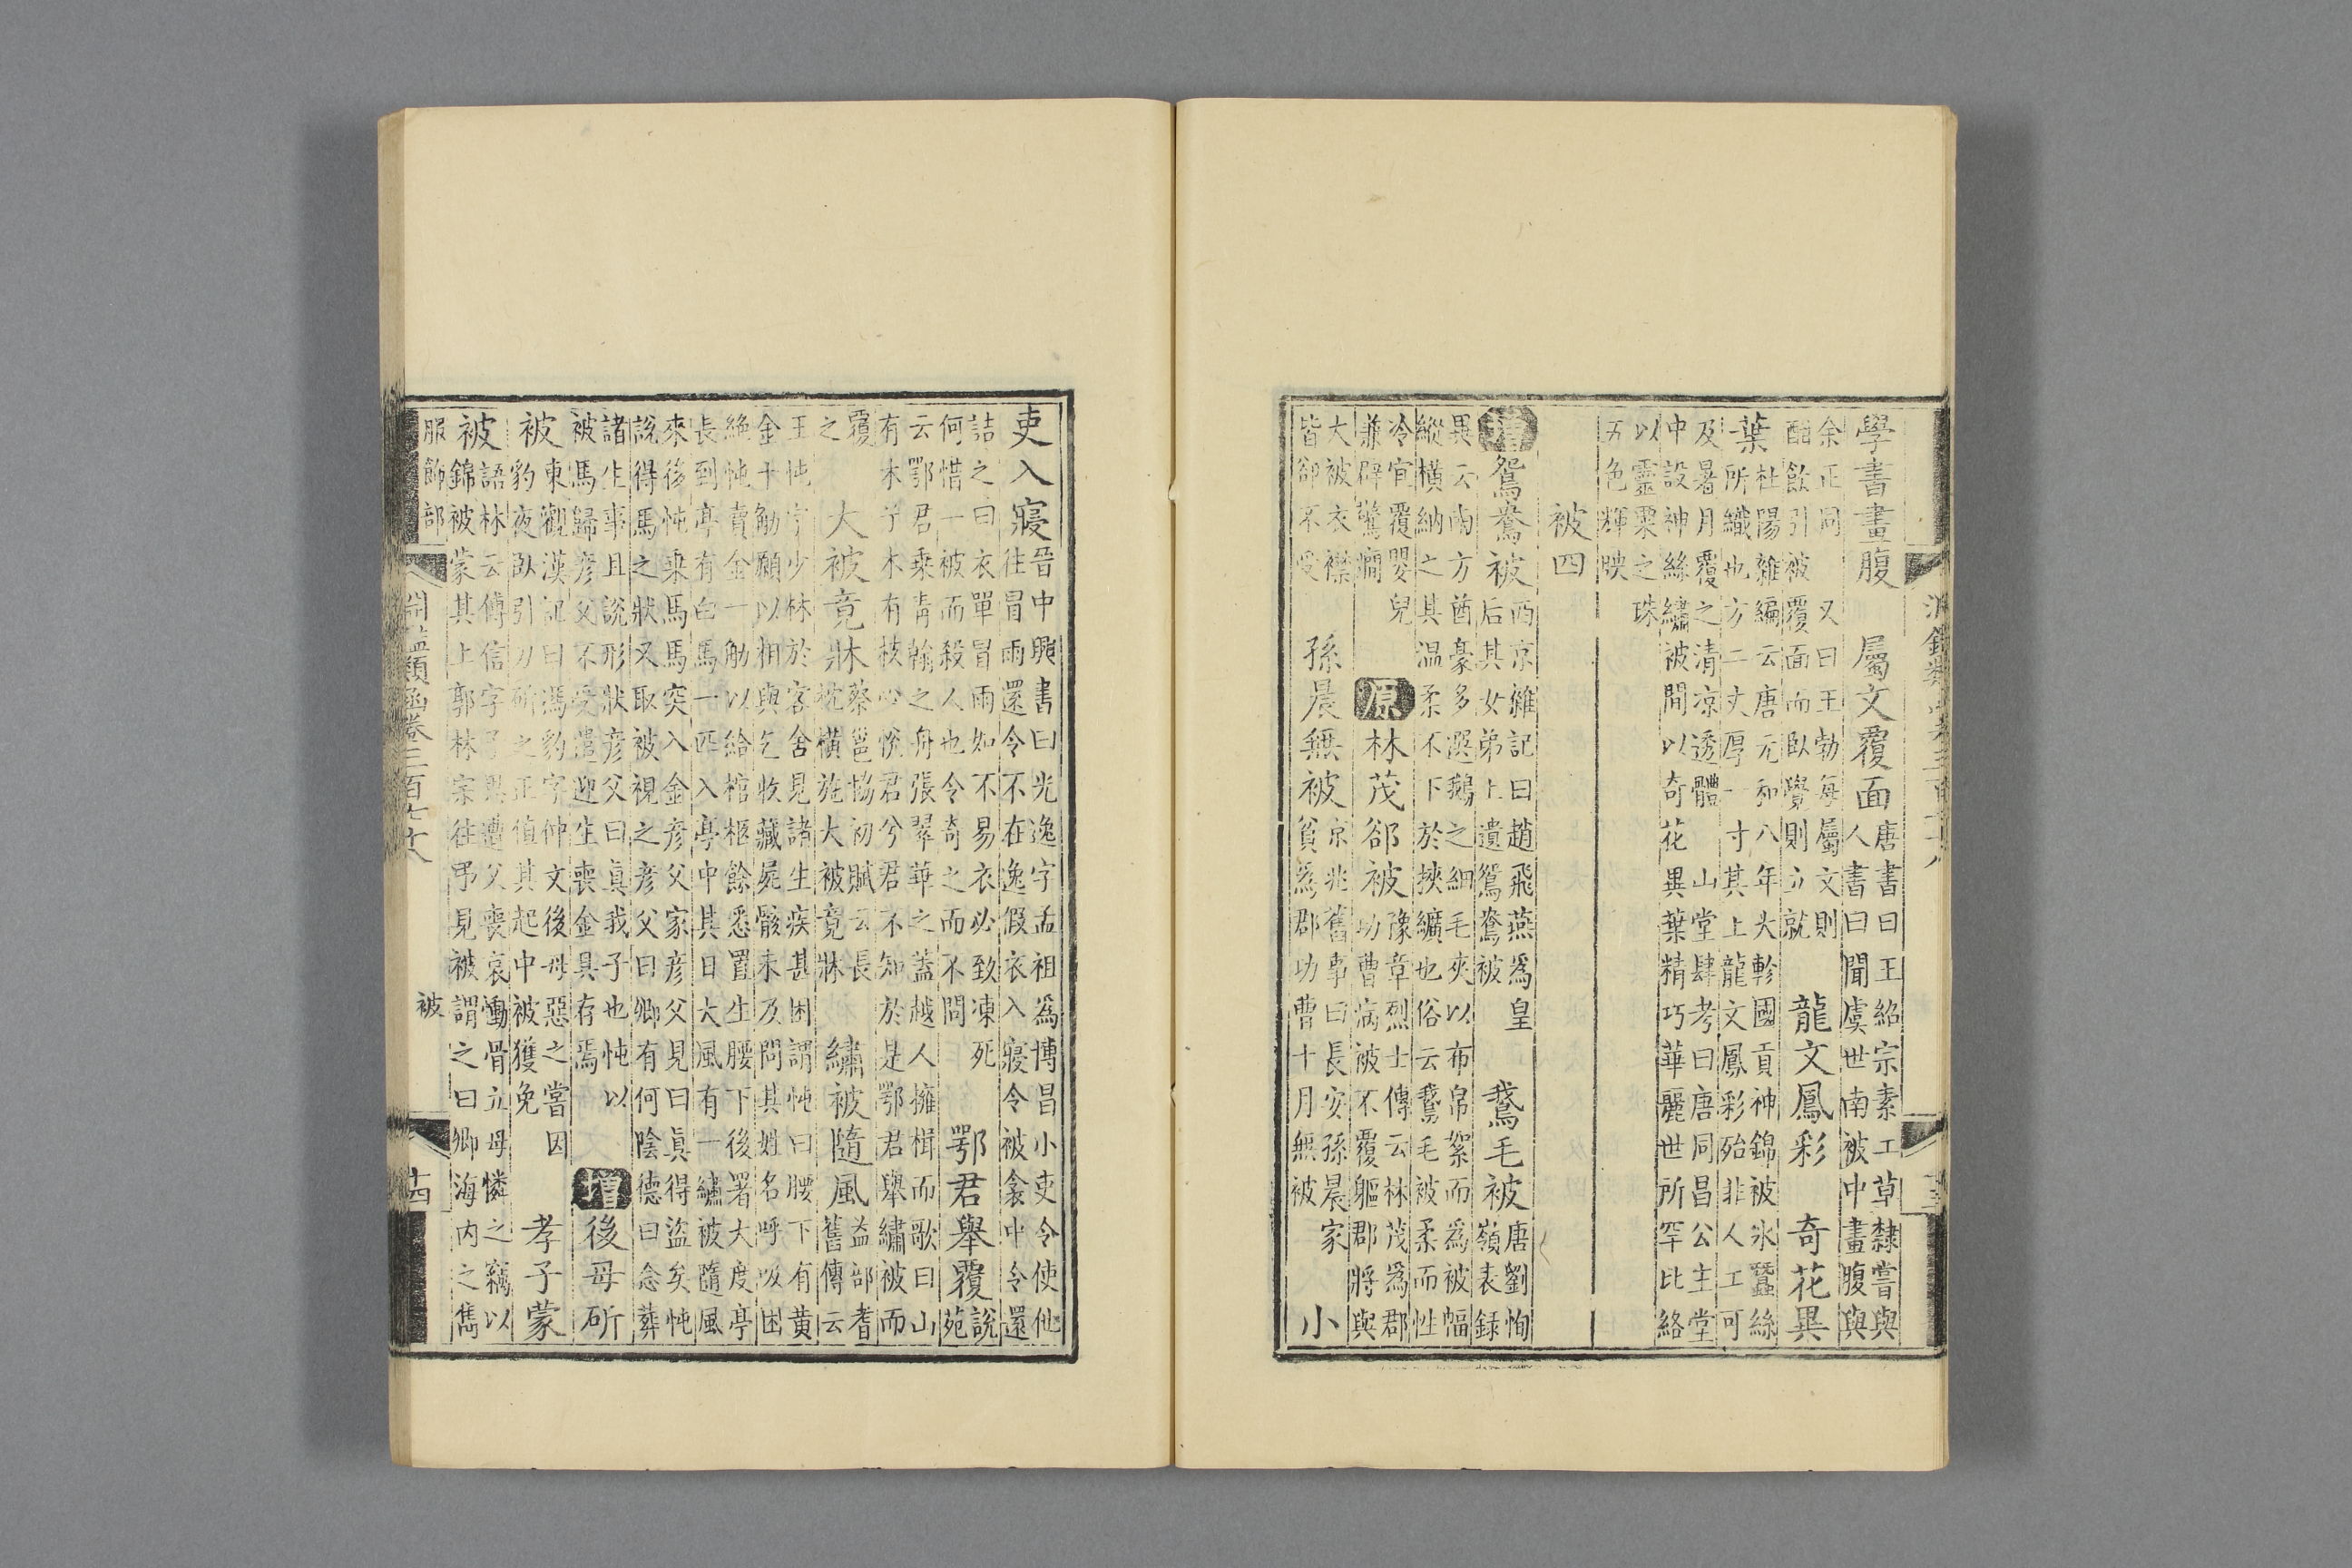 學書畫腹 唐書曰王紹宗素工草隸嘗與
人書曰聞虞世南被中畫腹與
余正同 屬文覆面 又曰王勃每屬文則
酣飲引被覆面而臥覺則立就 龍文鳳彩
杜陽雜編云唐元和八年大軫國貢神錦被氷蠶絲
所織也方二丈厚一寸其上龍文鳳彩殆非人工可
及 奇花異
葉
暑月覆之清凉透體 山堂肆考曰唐同昌公主堂
中設神絲繡被間以奇花異葉精巧華麗世所罕比絡
以靈粟之珠
五色輝映
被四
增 鴛鴦被 西京雜記曰趙飛燕爲皇
后其女弟上遺鴛鴦被 鵞毛被 唐劉恂
嶺表録
異云南方酋豪多選鵝之細毛夾以布帛絮而爲被幅
縱横納之其温柔不下於挾纊也俗云鵞毛被柔而性
冷宜覆嬰兒
兼辟驚癇 原 林茂郤被 豫章烈士傳云林茂爲郡
功曹病被不覆軀郡將與
大被衣襟
皆卻不受 孫晨無被 京兆舊事曰長安孫晨家
貧爲郡功曹十月無被 小
吏入寢 晉中興書曰光逸字孟祖爲博昌小吏令使他
往冒雨還令不在逸假衣入寢令被衾中令還
詰之曰衣單冒雨如不易衣必致凍死
何惜一被而殺人也令奇之而不問 鄂君舉覆 說
苑
云鄂君乘青翰之舟張翠華之蓋越人擁楫而歌曰山
有木兮木有枝心悅君兮君不知於是鄂君舉繡被而
覆
之 大被竟牀 蔡邕協初賦云長
枕橫施大被竟牀 繡被隨風 益部耆
舊傳云
王忳字少林於客舍見諸生疾甚困謂忳曰腰下有黄
金十觔願以相與乞收藏屍骸未及問其姓名呼吸困
絶忳賣金一觔以給棺柩餘悉置生腰下後署大度亭
長到亭有白馬一匹入亭中其日大風有一繡被隨風
來後忳乘馬馬突入金彦父家彦父見曰眞得盜矣忳
說得馬之狀又取被視之彦父曰卿有何陰德曰念葬
諸生事且說形狀彦父曰眞我子也忳以
被馬歸彦父不受遣迎生喪金具存焉 增 後母斫
被 東觀漢記曰馮豹字仲文後母惡之嘗因
豹夜臥引刀斫之正值其起中被獲免 孝子蒙
被 語林云傅信字子思遭父喪哀慟骨立母憐之竊以
錦被蒙其上郭林宗往弔見被謂之曰卿海内之雋
服飾部
淵鑑類函卷三百七十八
被
十四